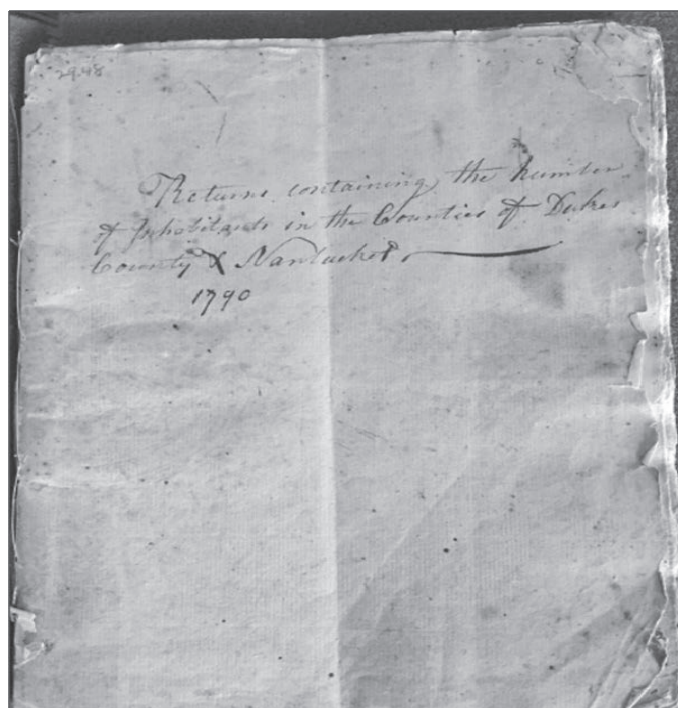 29.48
Returns containing the number
of Inhabitants in the Counties of Dukes
County & Nantucket
1790